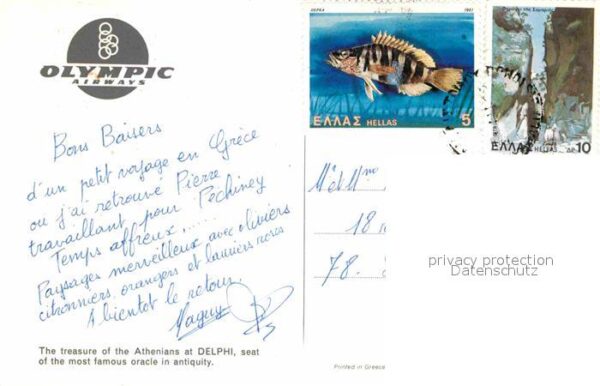 OLYMPIC
AIRWAYS
Bons Baisers
d'un petit voyage en Grèce
ou j'ai retrouvé Pierre
travaillant pour Péchiney
Temps affreux.....
Paysages merveilleux avec oliviers
citronniers, orangers et lauriers roses
A bientot le retour.
Maguy
The treasure of the Athenians at DELPHI, seat
of the most famous oracle in antiquity.
1981
ΕΛΛΑΣ HELLAS 5
ΕΛΛΑΣ HELLAS ΔΡ. 10
M et Mme
18
78.
privacy protection
Datenschutz
Printed in Greece